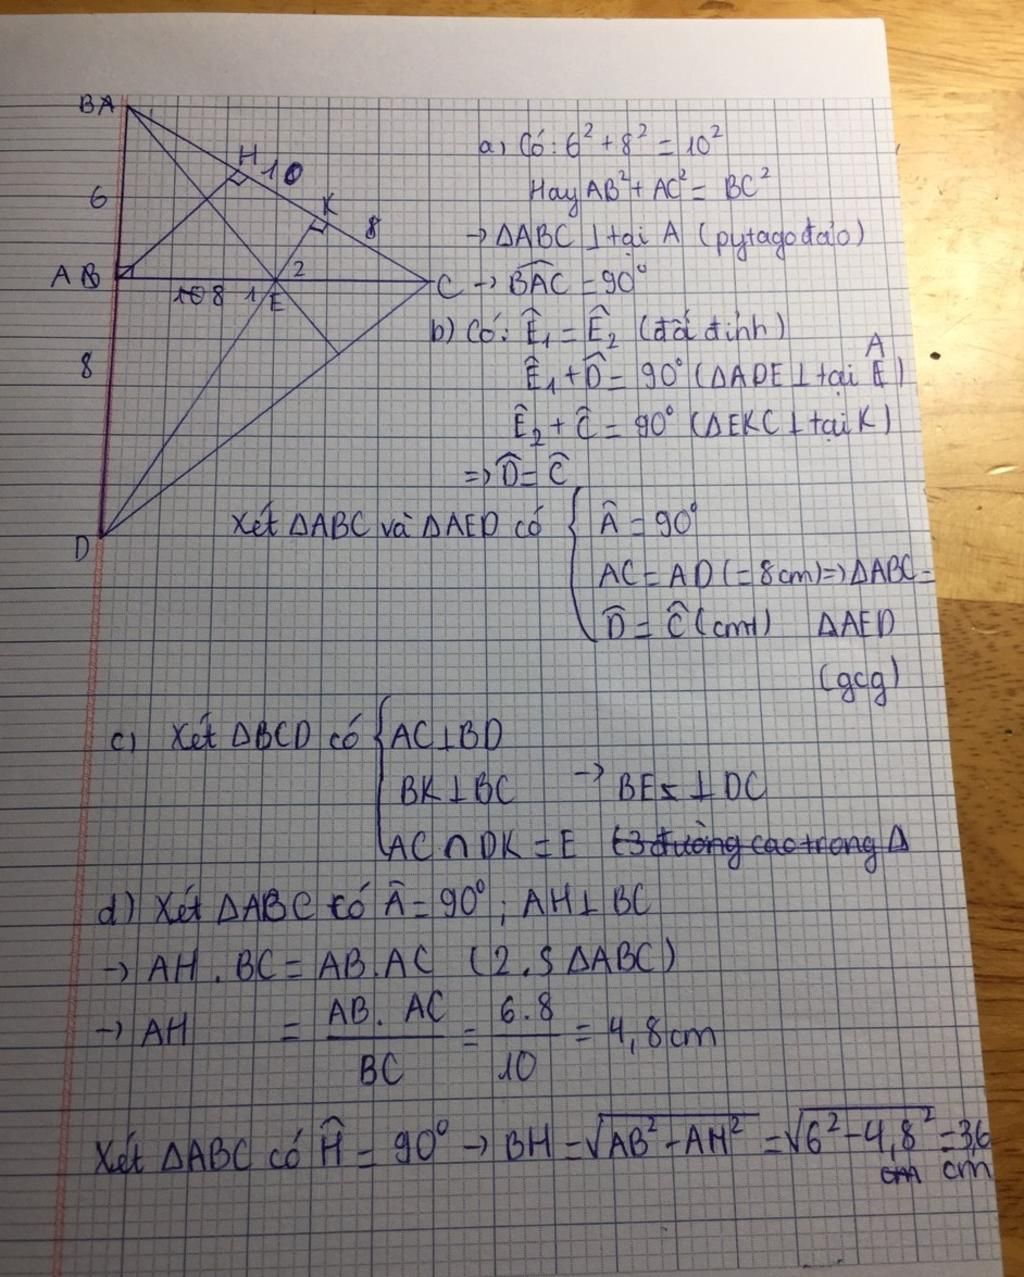 BA
H
10
6
K
8
AB
2
C
108
1
E
8
D
a, Có: 6² + 8² = 10²
Hay AB² + AC² = BC²
→ ΔABC ⊥ tại A (pytago đảo)
→ BAC = 90°
b) Có: Ê₁ = Ê₂ (đối đỉnh)
A
Ê₁ + D̂ = 90° (ΔADE ⊥ tại Ê)
Ê₂ + Ĉ = 90° (ΔEKC ⊥ tại K)
=> D̂ = Ĉ
Xét ΔABC và ΔAED có { Â = 90°
AC = AD (= 8cm) => ΔABC =
D̂ = Ĉ (cmt) ΔAED
(gcg)
c) Xét ΔBCD có { AC ⊥ BD
BK ⊥ BC → BE ⊥ DC
AC ∩ DK = E (3 đường cao trong Δ
d) Xét ΔABC có Â = 90°; AH ⊥ BC
→ AH . BC = AB . AC (2.S ΔABC)
→ AH = AB . AC / BC = 6.8 / 10 = 4,8cm
Xét ΔABC có Ĥ = 90° → BH = √AB² - AH² = √6² - 4,8² = 3,6
cm cm